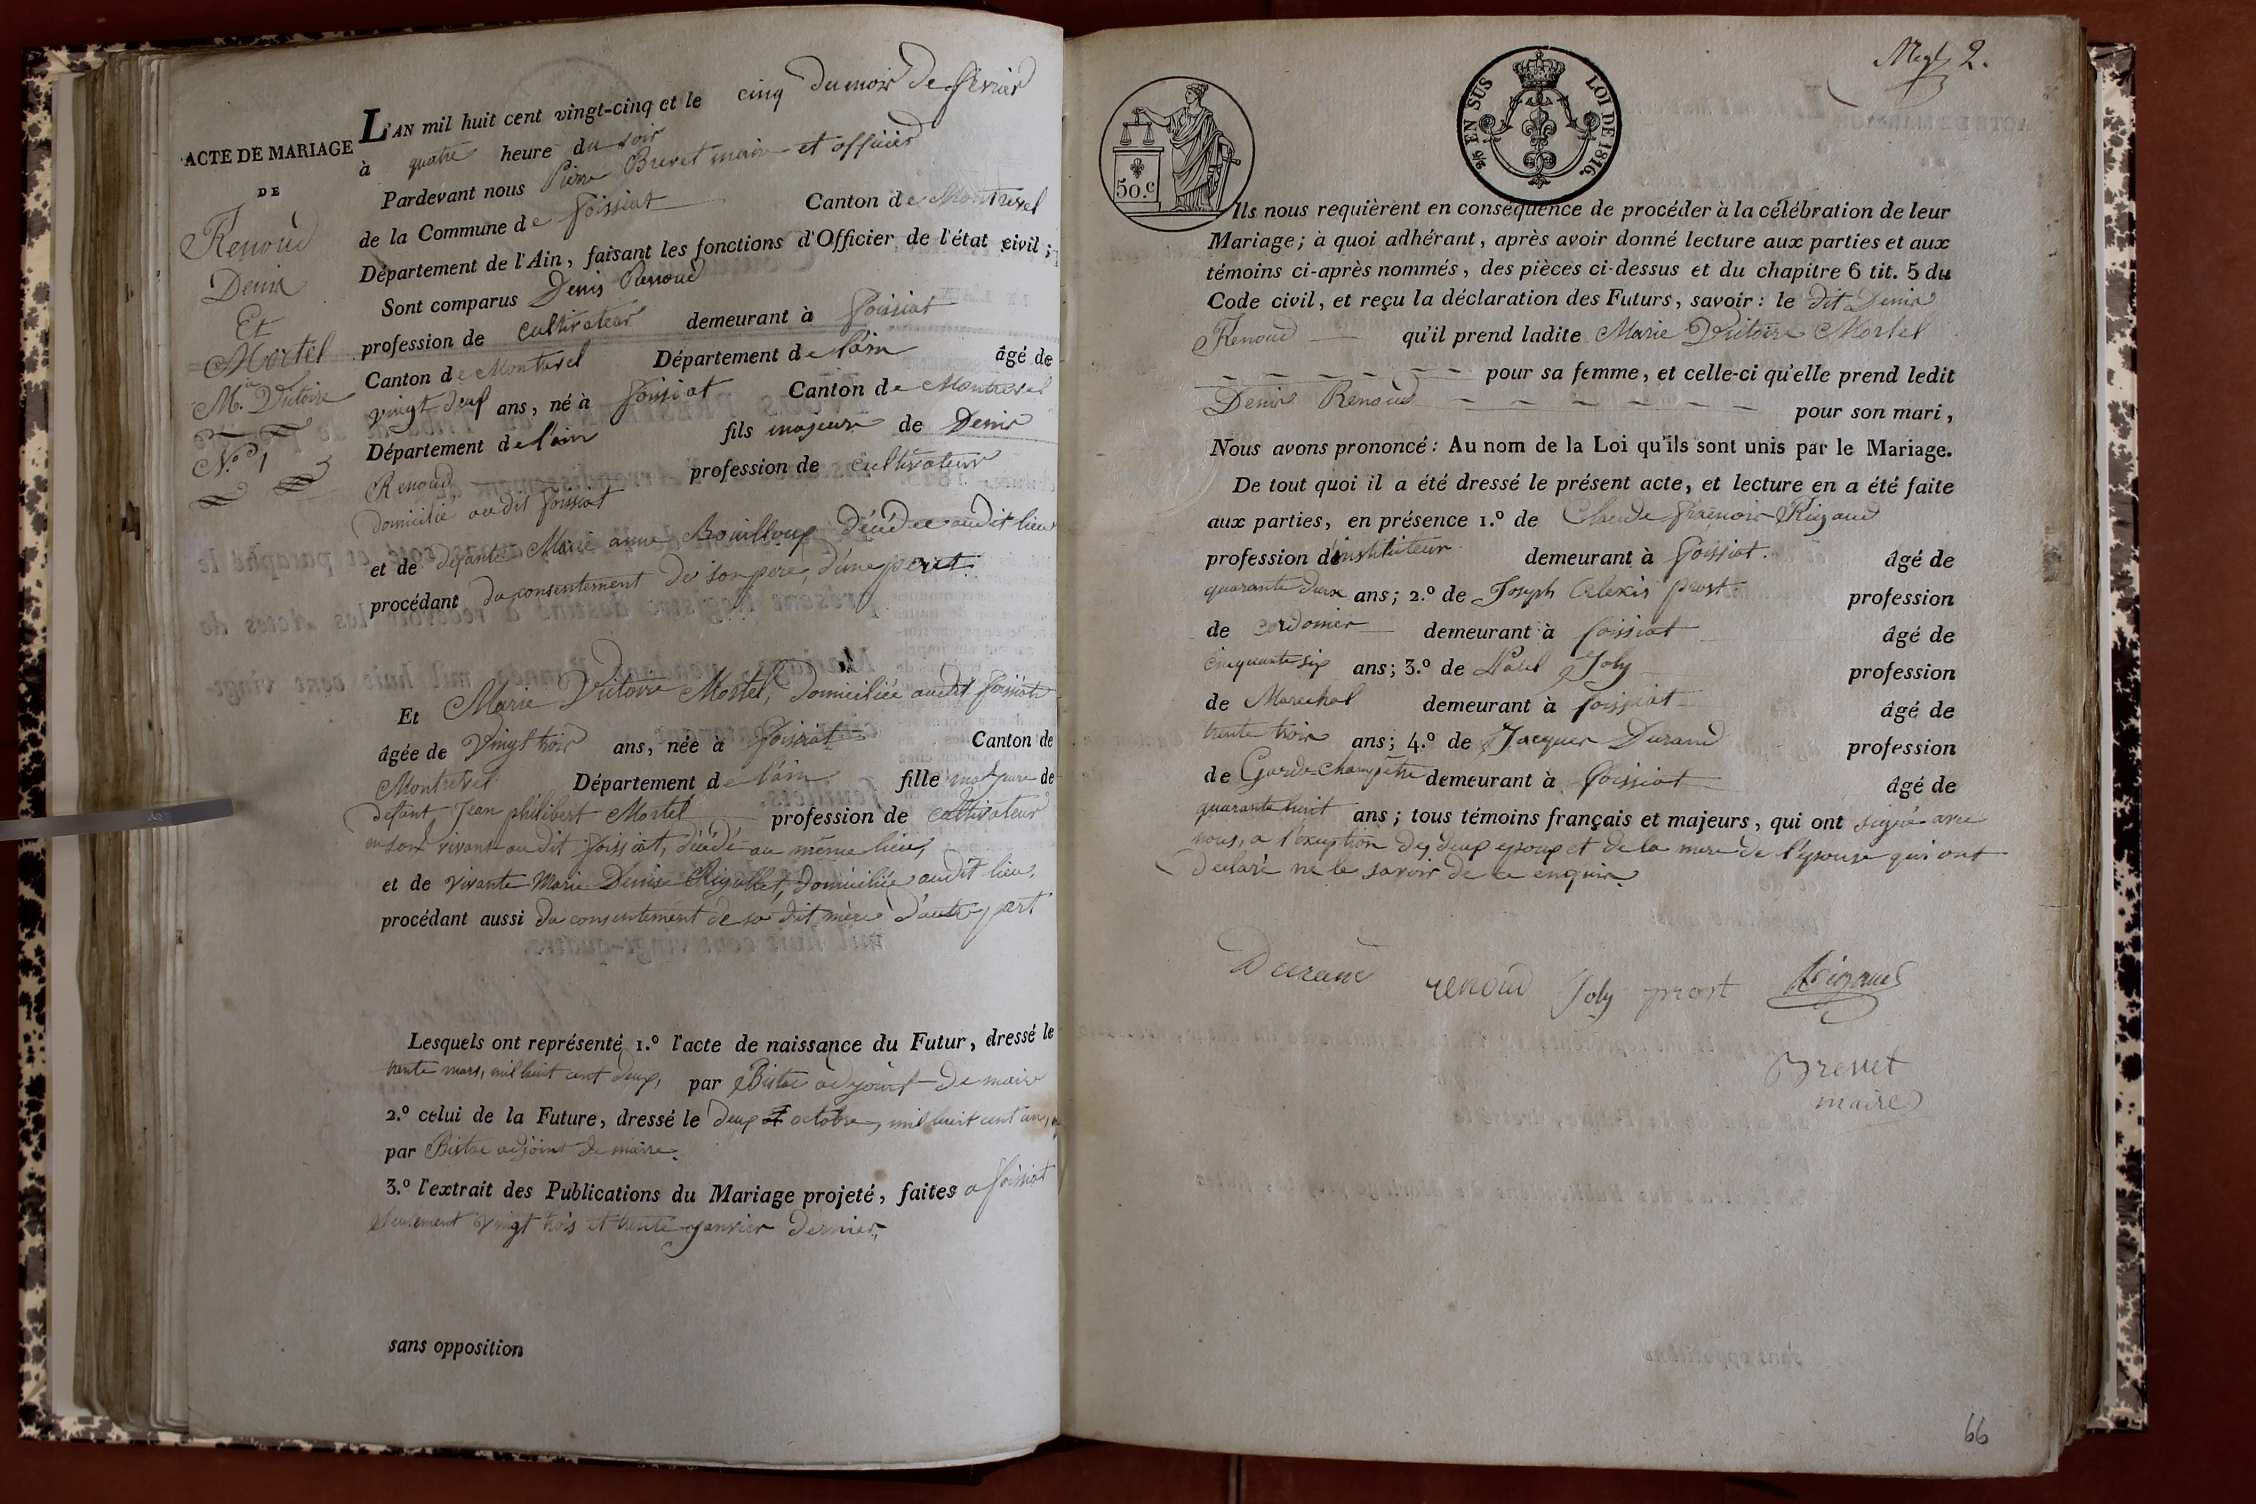 ACTE DE MARIAGE
DE
Renoud
Denis
Et
Mortel
M.ie Victoire
N.o 1
L'AN mil huit cent vingt-cinq et le cinq du mois de février
à quatre heure du soir
Pardevant nous Pierre Brevet maire et officier
de la Commune de foissiat Canton de Montrevel
Département de l'Ain, faisant les fonctions d'Officier de l'état civil ;
Sont comparus Denis Renoud
profession de cultivateur demeurant à foissiat
Canton de Montrevel Département de l'ain âgé de
vingt deux ans, né à foissiat Canton de Montrevel
Département de l'ain fils majeur de Denis
Renoud profession de cultivateur
domicilié audit foissiat
et de défante Marie anne Bouilloux décédée audit lieu
procédant du consentement de son pere, d'une part.
Et Marie Victoire Mortel, domiciliée audit foissiat
âgée de vingt trois ans, née à foissiat Canton de
Montrevel Département de l'ain fille majeure de
defant Jean philibert Mortel profession de cultivateur
en son vivant audit foissiat, décédé au même lieu,
et de vivante Marie Denise Rigollet, domiciliée audit lieu,
procédant aussi du consentement de sa dit mère d'autre part
Lesquels ont représenté 1.o l'acte de naissance du Futur, dressé le
trente mars, mil huit cent deux, par Bistac adjoint de maire
2.o celui de la Future, dressé le deux octobre, mil huit cent un,
par Bistac adjoint de maire.
3.o l'extrait des Publications du Mariage projeté, faites a foissiat
seulement vingt trois et trente janvier dernier,
sans opposition
2.
50.c
2/5 EN SUS LOI DE 1816.
Ils nous requièrent en conséquence de procéder à la célébration de leur
Mariage; à quoi adhérant, après avoir donné lecture aux parties et aux
témoins ci-après nommés, des pièces ci-dessus et du chapitre 6 tit. 5 du
Code civil, et reçu la déclaration des Futurs, savoir : le dit Denis
Renoud qu'il prend ladite Marie Victoire Mortel
pour sa femme, et celle-ci qu'elle prend ledit
Denis Renoud pour son mari,
Nous avons prononcé : Au nom de la Loi qu'ils sont unis par le Mariage.
De tout quoi il a été dressé le présent acte, et lecture en a été faite
aux parties, en présence 1.o de Claude françois Rigaud
profession d'instituteur demeurant à foissiat. âgé de
quarante deux ans; 2.o de Joseph Alexis prost profession
de cordonier demeurant à foissiat âgé de
cinquante six ans; 3.o de Joly profession
de Marechal demeurant à foissiat âgé de
trente trois ans; 4.o de Jacques Durand profession
de Garde-champêtre demeurant à foissiat âgé de
quarante huit ans; tous témoins français et majeurs, qui ont signé avec
nous, a l'exeption des deux epoux et de la mere de l'épouse qui ont
declaré ne le savoir de ce enquis.
Durand renoud Joly prost Rigaud
Brevet
maire
66